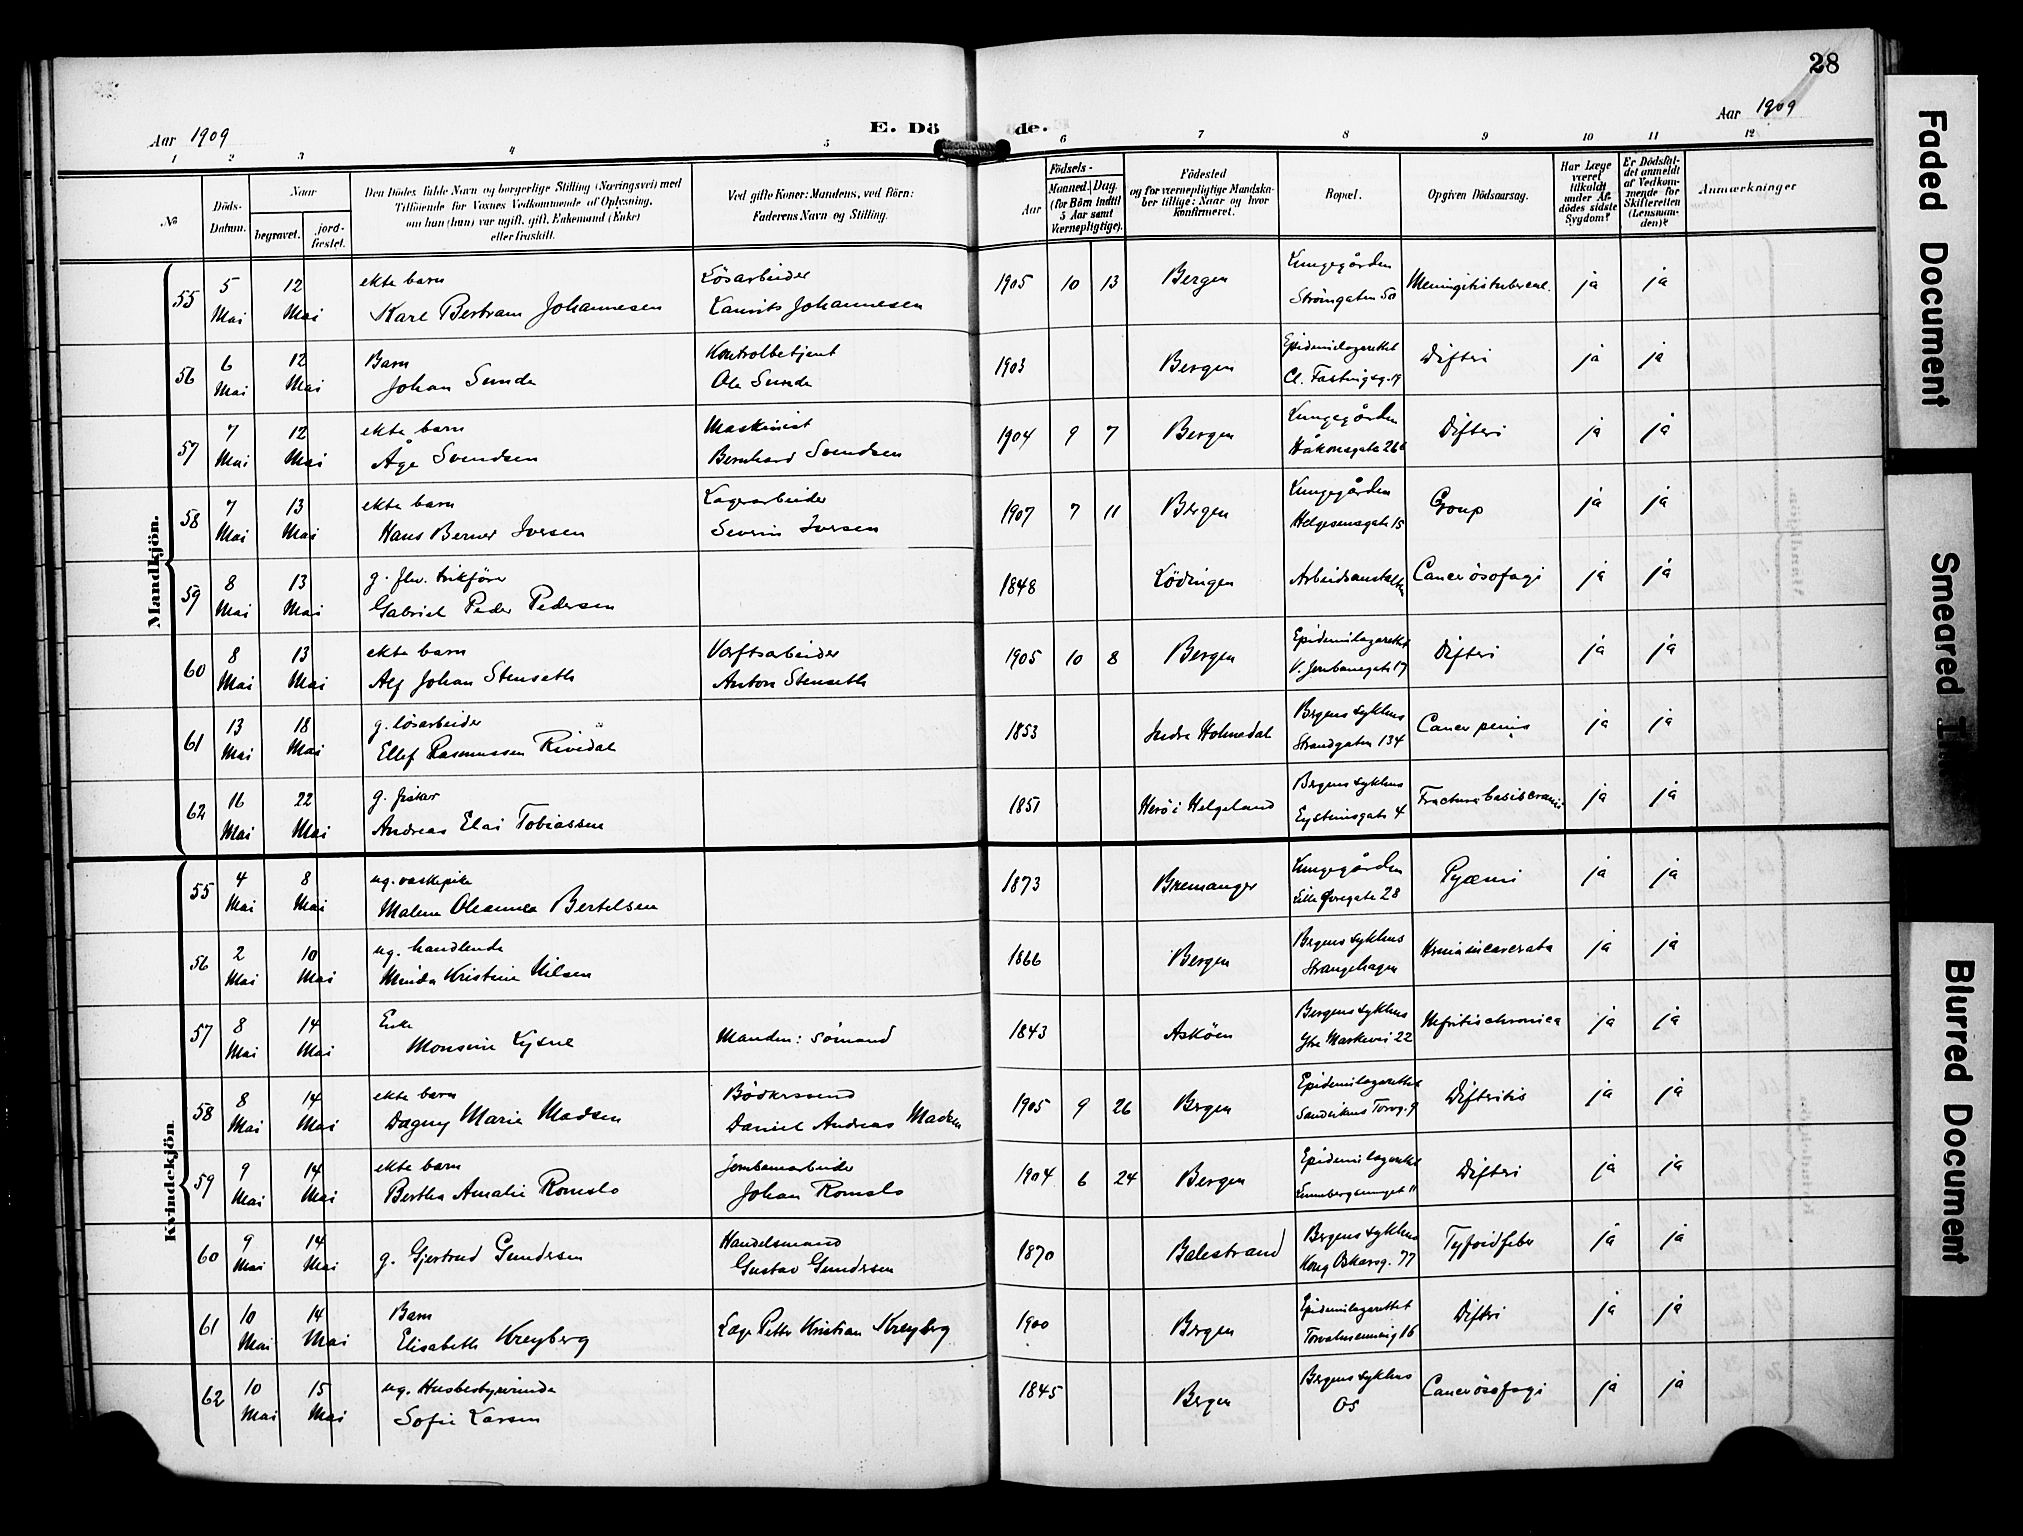 28
Aar 1909
E. Dö
de.
Aar 1909
1 2 3 4 5 6 7 8 9 10 11 12
No
Döds-Datum.
Naar
begravet.
jord-fæstet.
Den Dödes fulde Navn og borgerlige Stilling (Næringsvei) med
Tilföiende for Voxnes Vedkommende af Oplysning,
om han (hun) var ugift, gift, Enkemand (Enke)
eller fraskilt.
Ved gifte Koner: Mandens, ved Börn:
Faderens Navn og Stilling.
Födsels-
Aar
Maaned. Dag.
(for Börn indtil
5 Aar samt
Værnepligtige).
Födested
og for værnepligtige Mandska-
ber tillige: Naar og hvor
konfirmeret.
Bopæl.
Opgiven Dödsaarsag.
Har Læge
været
tilkaldt
under Af-
dödes sidste
Sygdom?
Er Dödsfal-
det anmeldt
af Vedkom-
mende for
Skifteretten
(Lensman-
den)?
Anmærkninger
Mandkjön.
55 5 Mai 12 Mai ekte barn Karl Bertram Johannesen Lösarbeider Laurits Johannesen 1905 10 13 Bergen Lungegården Strömgaten 50 Meningitis tubercul. ja ja
56 6 Mai 12 Mai Barn Johan Sunde Kontrolbetjent Ole Sunde 1903 Bergen Epidemilazarettet Cl. Fastingsg. 19 Difteri ja ja
57 7 Mai 12 Mai ekte barn Åge Svendsen Maskinist Bernhard Svendsen 1904 9 7 Bergen Lungegården Håkonsgate 26b Difteri ja ja
58 7 Mai 13 Mai ekte barn Hans Berner Iversen Lagerarbeider Severin Iversen 1907 7 11 Bergen Lungegården Helgesensgate 15 Croup ja ja
59 8 Mai 13 Mai g. Gabriel Peder Pedersen 1848 Lödingen Arbeidsanstalten Cancer ösofagi ja ja
60 8 Mai 13 Mai ekte barn Alf Johan Stenseth Verftsarbeider Anton Stenseth 1905 10 8 Bergen Epidemilazarettet V. Jernbanegate 17 Difteri ja ja
61 13 Mai 18 Mai g. lösarbeider Ellef Rasmussen Rivedal 1853 Indre Holmedal Bergens sykehus Strandgaten 134 Cancer penis ja ja
62 16 Mai 22 Mai g. fisker Andreas Elai Tobiassen 1851 Herö i Helgeland Bergens sykehus Eysteinsgate 4 Fractura basis cranii ja ja
Kvindekjön.
55 4 Mai 8 Mai ug. vaskepike Malene Oleanna Bertelsen 1873 Bremanger Lungegården Lille Øvregate 28 Pyæmi ja ja
56 2 Mai 10 Mai ug. handlende Minda Kristine Nilsen 1866 Bergen Bergens sykehus Strangehagen Hernia incarcerata ja ja
57 8 Mai 14 Mai Enke Monsine Lysne Manden: sömand 1843 Asköen Bergens sykehus Ytre Markevei 22 Nefritis chronica ja ja
58 8 Mai 14 Mai ekte barn Dagny Marie Madsen Bödkersvend Daniel Andreas Madsen 1905 9 26 Bergen Epidemilazarettet Sandvikens Torvg. 9 Difteritis ja ja
59 9 Mai 14 Mai ekte barn Bertha Amalie Romslo Jernbanearbeider Johan Romslo 1904 6 24 Bergen Epidemilazarettet 11 Difteri ja ja
60 9 Mai 14 Mai g. Gjertrud Gundersen Handelsmand Gustav Gundersen 1870 Balestrand Bergens sykehus Kong Oskarsg. 77 Tyfoidfeber ja ja
61 10 Mai 14 Mai Barn Elisabeth Kreyberg Læge Peter Kristian Kreyberg 1900 Bergen Epidemilazarettet Torvalmenning 16 Difteri ja ja
62 10 Mai 15 Mai ug. Husbestyrerinde Sofie Larsen 1845 Bergen Bergens sykehus Os Cancer ösofagi ja ja
Faded Document
Smeared
Blurred Document